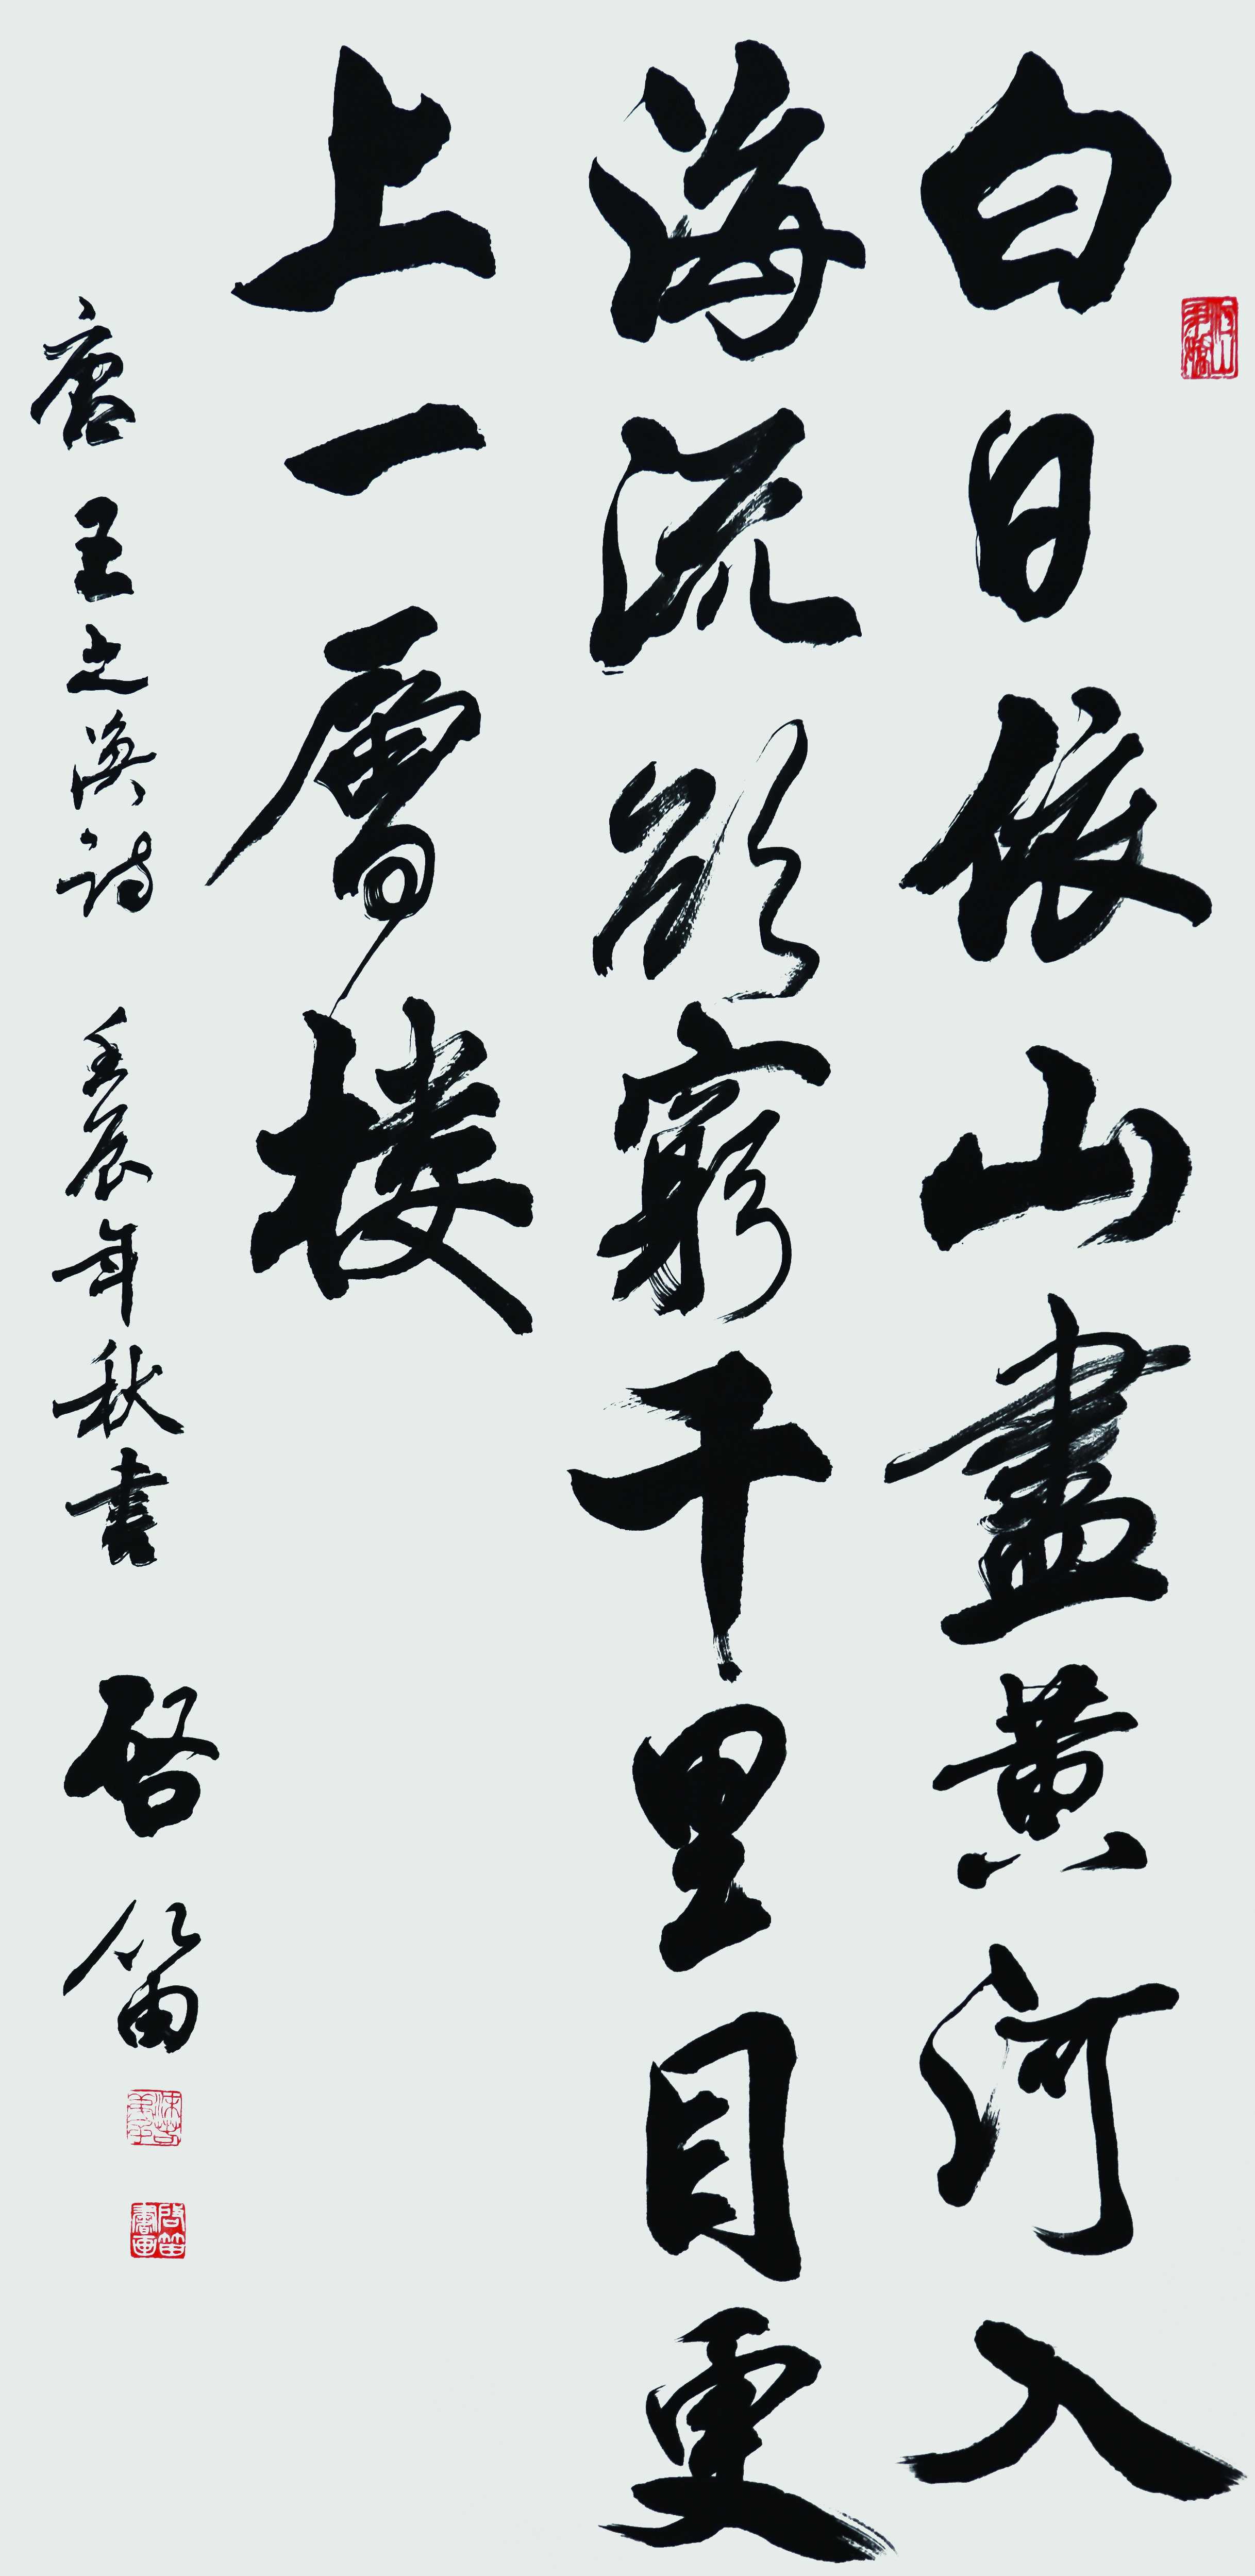 白日依山盡黄河入
海流欲窮千里目更
上一層楼
唐王之渙詩 壬辰年秋書 啓笛
啓笛書画